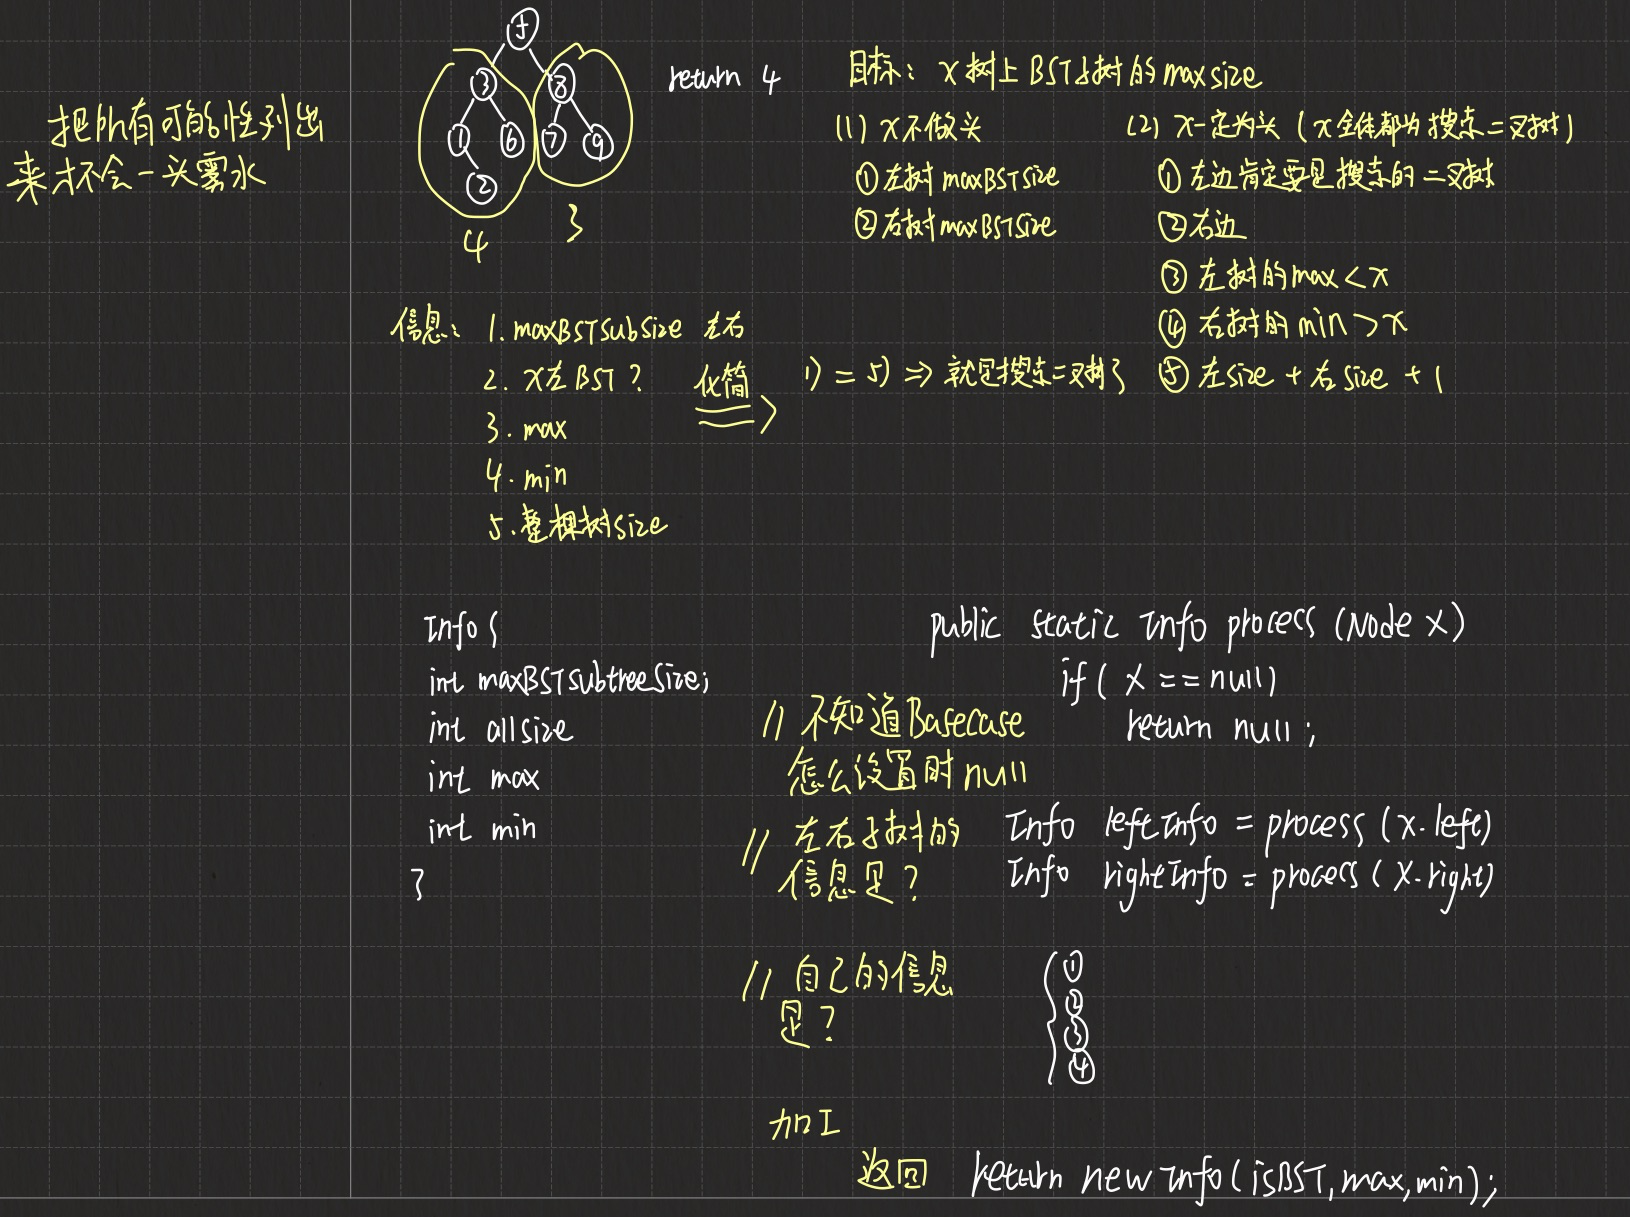 把所有可能性列出
来才不会一头雾水
5
3
8
1
6
7
9
2
4
3
return 4
目标：X树上BST子树的maxsize
(1) X不做头
① 左树maxBSTsize
② 右树maxBSTsize
(2) X一定为头（X全体都为搜索二叉树）
① 左边肯定要是搜索的二叉树
② 右边
③ 左树的max < X
④ 右树的min > X
⑤ 左size + 右size + 1
信息：1. maxBSTsubsize 左右
2. X左BST？
3. max
4. min
5. 整棵树size
化简
1) = 5) ⇒ 就是搜索二叉树了
Info {
int maxBSTsubtreeSize;
int allsize
int max
int min
}
public static Info process (Node X)
if ( X == null)
return null ;
// 不知道Basecase
怎么设置时null
// 左右子树的
信息是？
Info leftInfo = process (X.left)
Info rightInfo = process (X.right)
// 自己的信息
是？
①
②
③
④
加工
返回 return new Info(isBST, max, min);